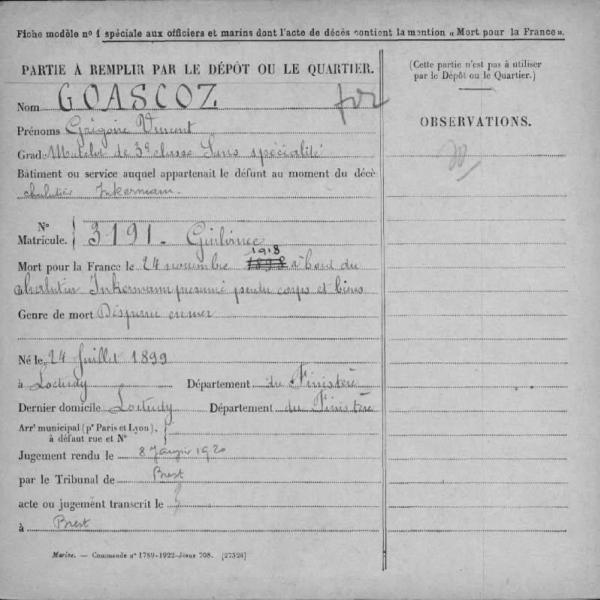 Fiche modèle n° 1 spéciale aux officiers et marins dont l'acte de décès contient la mention « Mort pour la France ».
PARTIE À REMPLIR PAR LE DÉPÔT OU LE QUARTIER.
Nom GOASCOZ
Prénoms Grégoire Vincent
Grade Matelot de 3e classe Sans spécialité
Bâtiment ou service auquel appartenait le défunt au moment du décè
chalutier Inkermann.
N°
Matricule. 3191 - Guilvinec
1918
Mort pour la France le 24 novembre à bord du
chalutier Inkermann présumé perdu corps et biens
Genre de mort Disparu en mer
Né le 24 Juillet 1899
à Loctudy Département du Finistère
Dernier domicile Loctudy Département du Finistère
Arrt municipal (pr Paris et Lyon),
à défaut rue et N°
Jugement rendu le 8 Janvier 1920
par le Tribunal de Brest
acte ou jugement transcrit le
à Brest
Marine. — Commande n° 1789-1922-Jésus 708. [27524]
(Cette partie n'est pas à utiliser
par le Dépôt ou le Quartier.)
OBSERVATIONS.